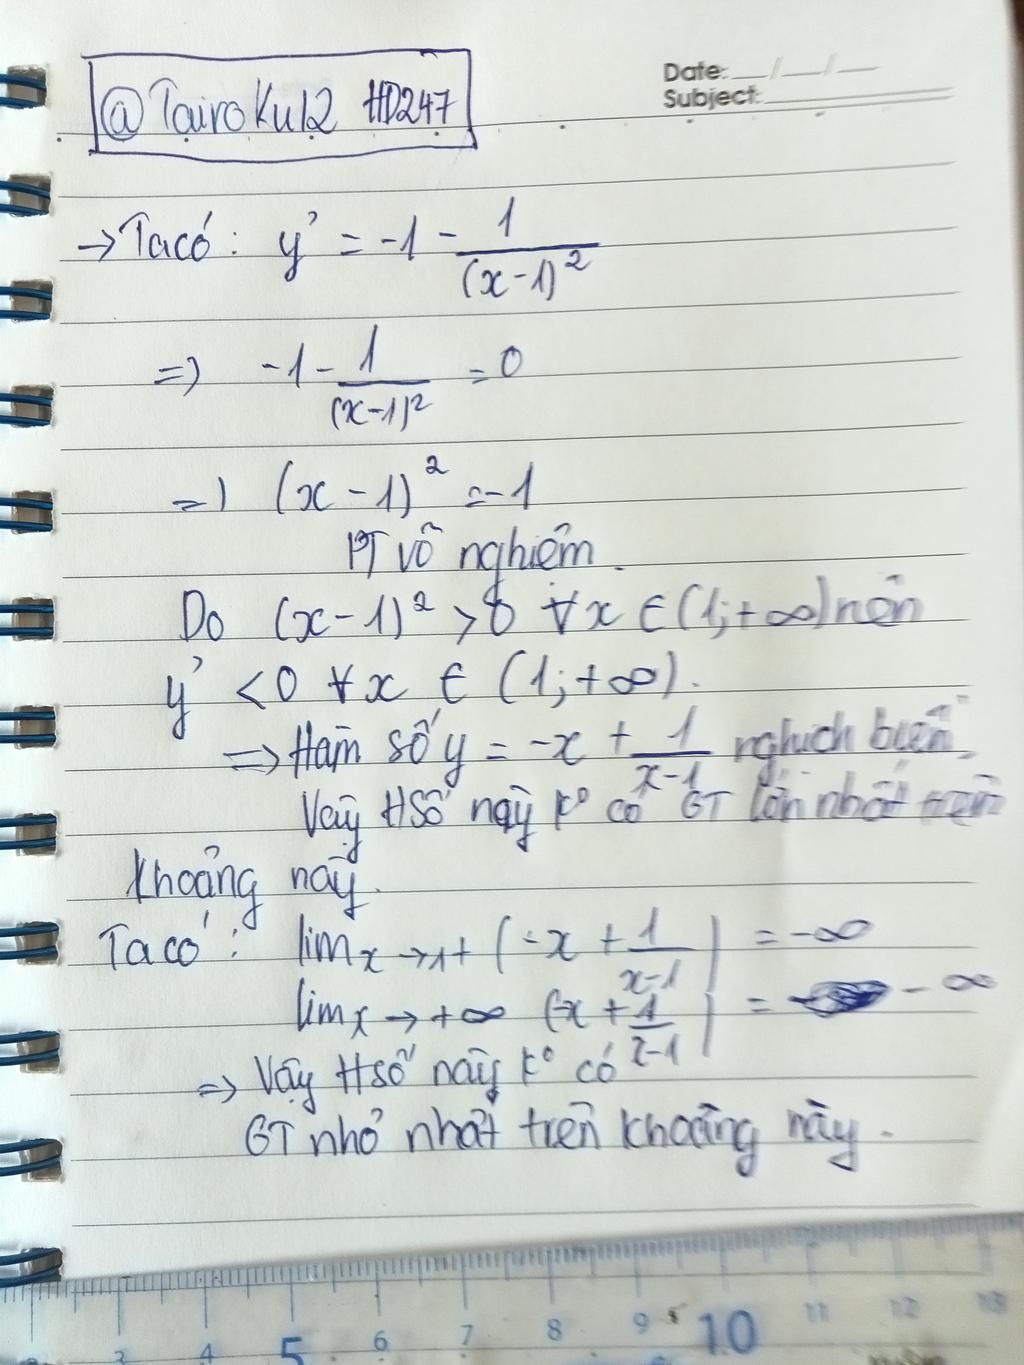 @Tairoku12 HD247
Date: __/__/__
Subject:
→ Ta có: y' = -1 - 1/(x-1)²
=> -1 - 1/(x-1)² = 0
=> (x-1)² = -1
PT vô nghiệm.
Do (x-1)² > 0 ∀x ∈ (1;+∞) nên
y' < 0 ∀x ∈ (1;+∞).
=> Hàm số y = -x + 1/(x-1) nghịch biến.
Vậy HSố này k° có GT lớn nhất trên
khoảng này.
Ta có: lim x→1+ (-x + 1/(x-1)) = -∞
lim x→+∞ (-x + 1/(x-1)) = -∞
=> Vậy HSố này k° có
GT nhỏ nhất trên khoảng này.
3 4 5 6 7 8 9 10 11 12 13